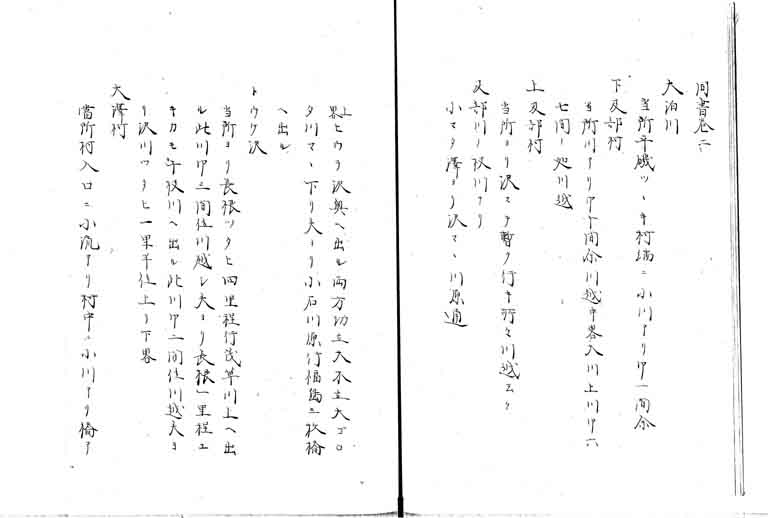 同書巻二
大泊川
当所平磯ツヽキ村端ニ小川アリ巾一間余
下及部村
当所川アリ巾十間余川越中畧入川上川巾六
七間ノ処川越
上及部村
当所ヨリ沢マタ暫ク行キ所々川越三ケ
及部川ノ枝川アリ
小マタ澤ヨリ沢マヽ川原通
上ヒウタ沢奥ヘ出ル両方切立大木立大ゴロ
タ川マヽ下リ夫ヨリ小石川原行福島ニ枚橋
ヘ出ル
トウケ沢
当所ヨリ長根ツタヒ四里程行茂草川上ヘ出
ル此川巾三間位川越レ夫ヨリ長根一里程エ
キカモ午枝川ヘ出ル此川巾二間位川越夫ヨ
リ沢川ツタヒ一里半位上リ下畧
大澤村
當所村入口ニ小流アリ村中ニ小川アリ橋ア